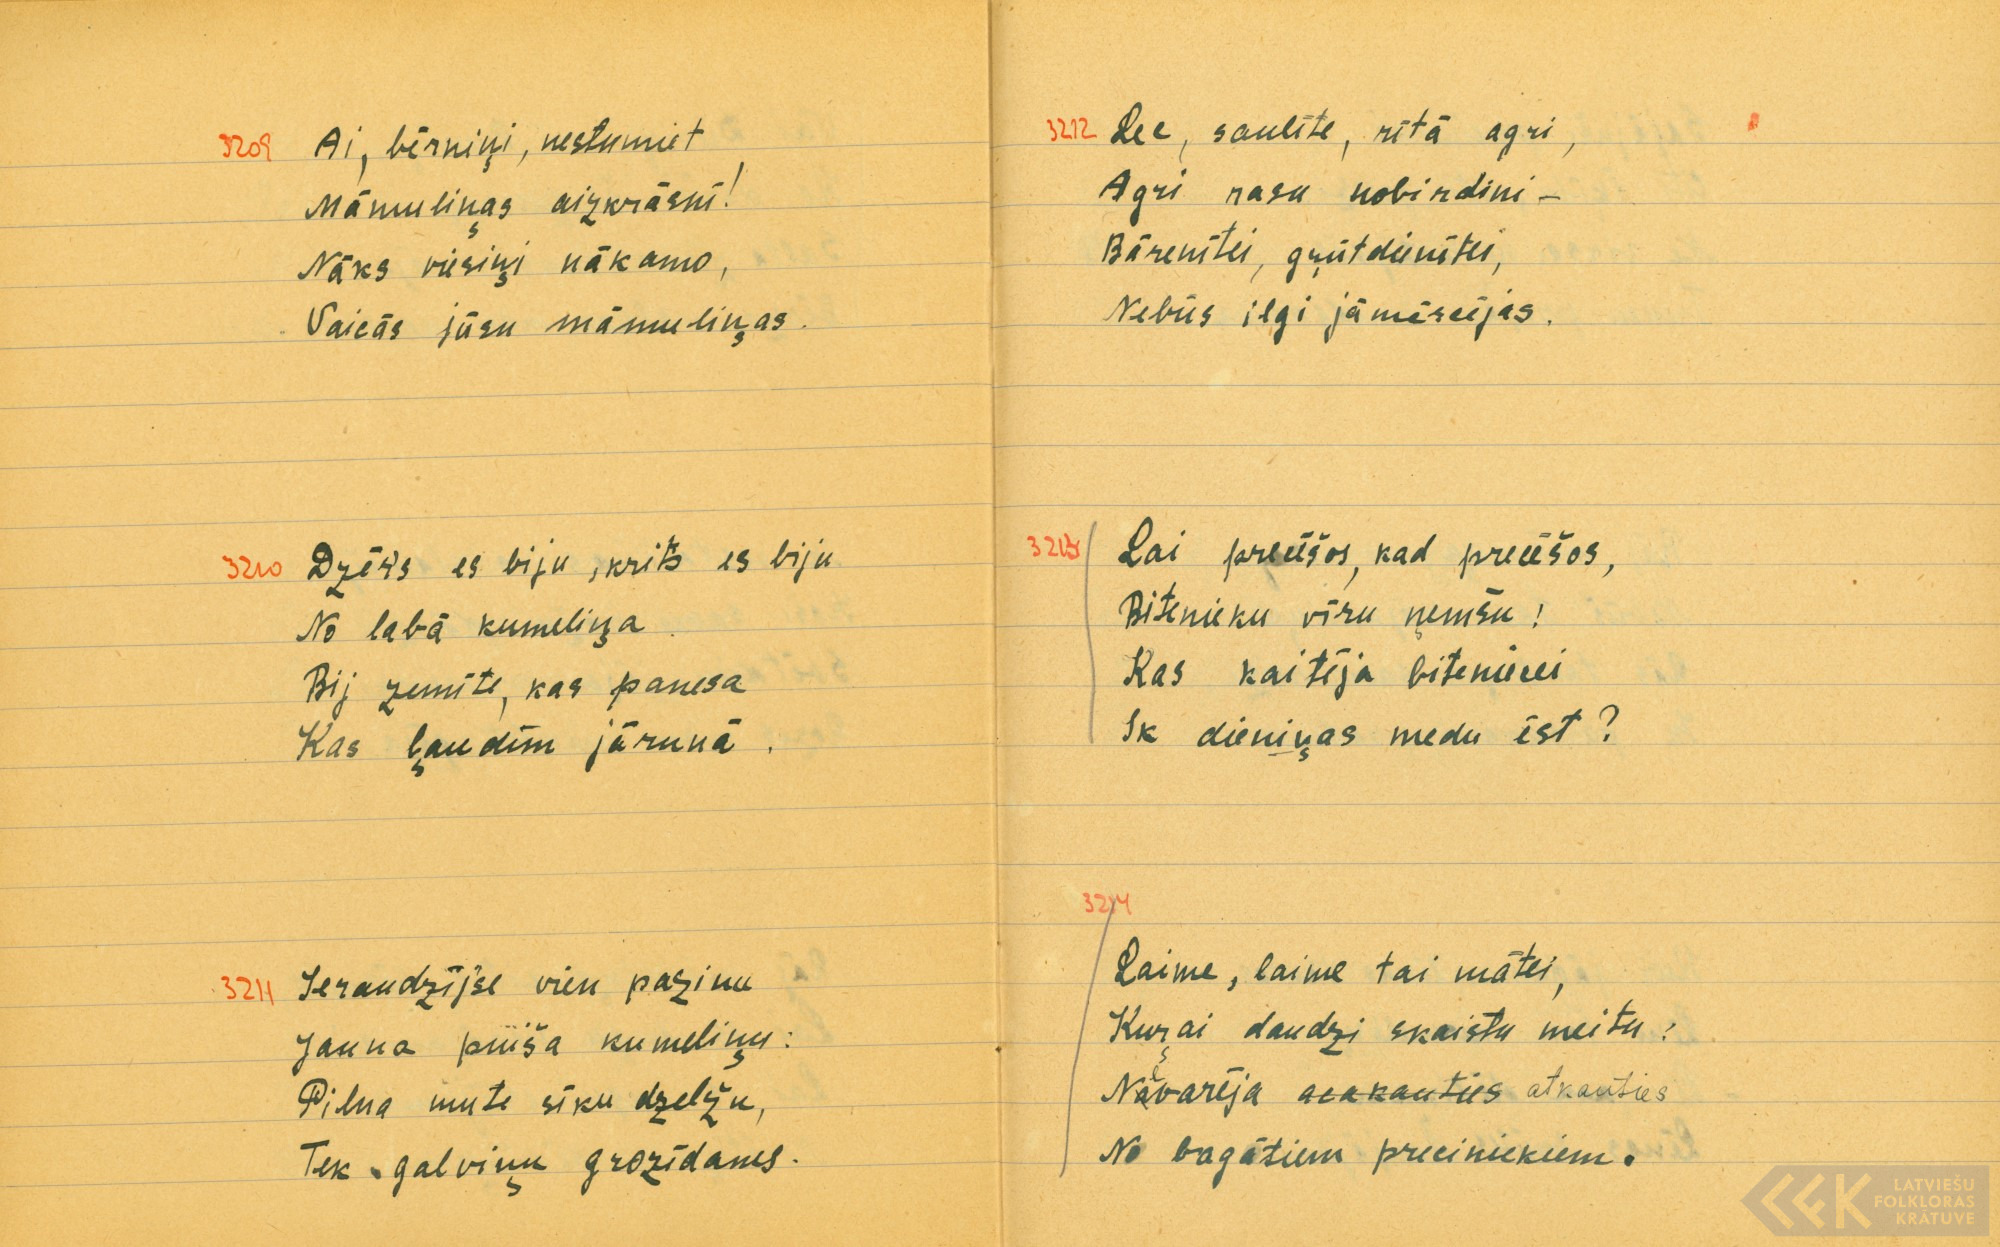 3209 Ai, bērniņi, nestumiet
Māmuliņas aizkrāsnī!
Nāks viesiņi nākamo,
Vaicās jūsu māmuliņas.
3210 Dzēris es biju, kritis es biju
No labā kumeliņa
Bij zemīte, kas panesa
Kas ļaudīm jārunā.
3211 Ieraudzījse vien pazinu
Jauna puiša kumeliņu:
Pilna mute sīku dzelžu,
Tek galviņu grozīdams.
3212 Lec, saulīte, rītā agri,
Agri rasu nobirdini –
Bārenītei, grūtdienītei,
Nebūs ilgi jāmērcējas.
3213 Lai precēšos, kad precēšos,
Bitenieku vīru ņemšu!
Kas kaitēja biteniecei
Ik dieniņas medu ēst?
3214
Laime, laime tai mātei,
Kuŗai daudzi skaistu meitu:
Nevarēja acakauties atkauties
No bagātiem preciniekiem.
LATVIEŠU
FOLKLORAS
KRĀTUVE